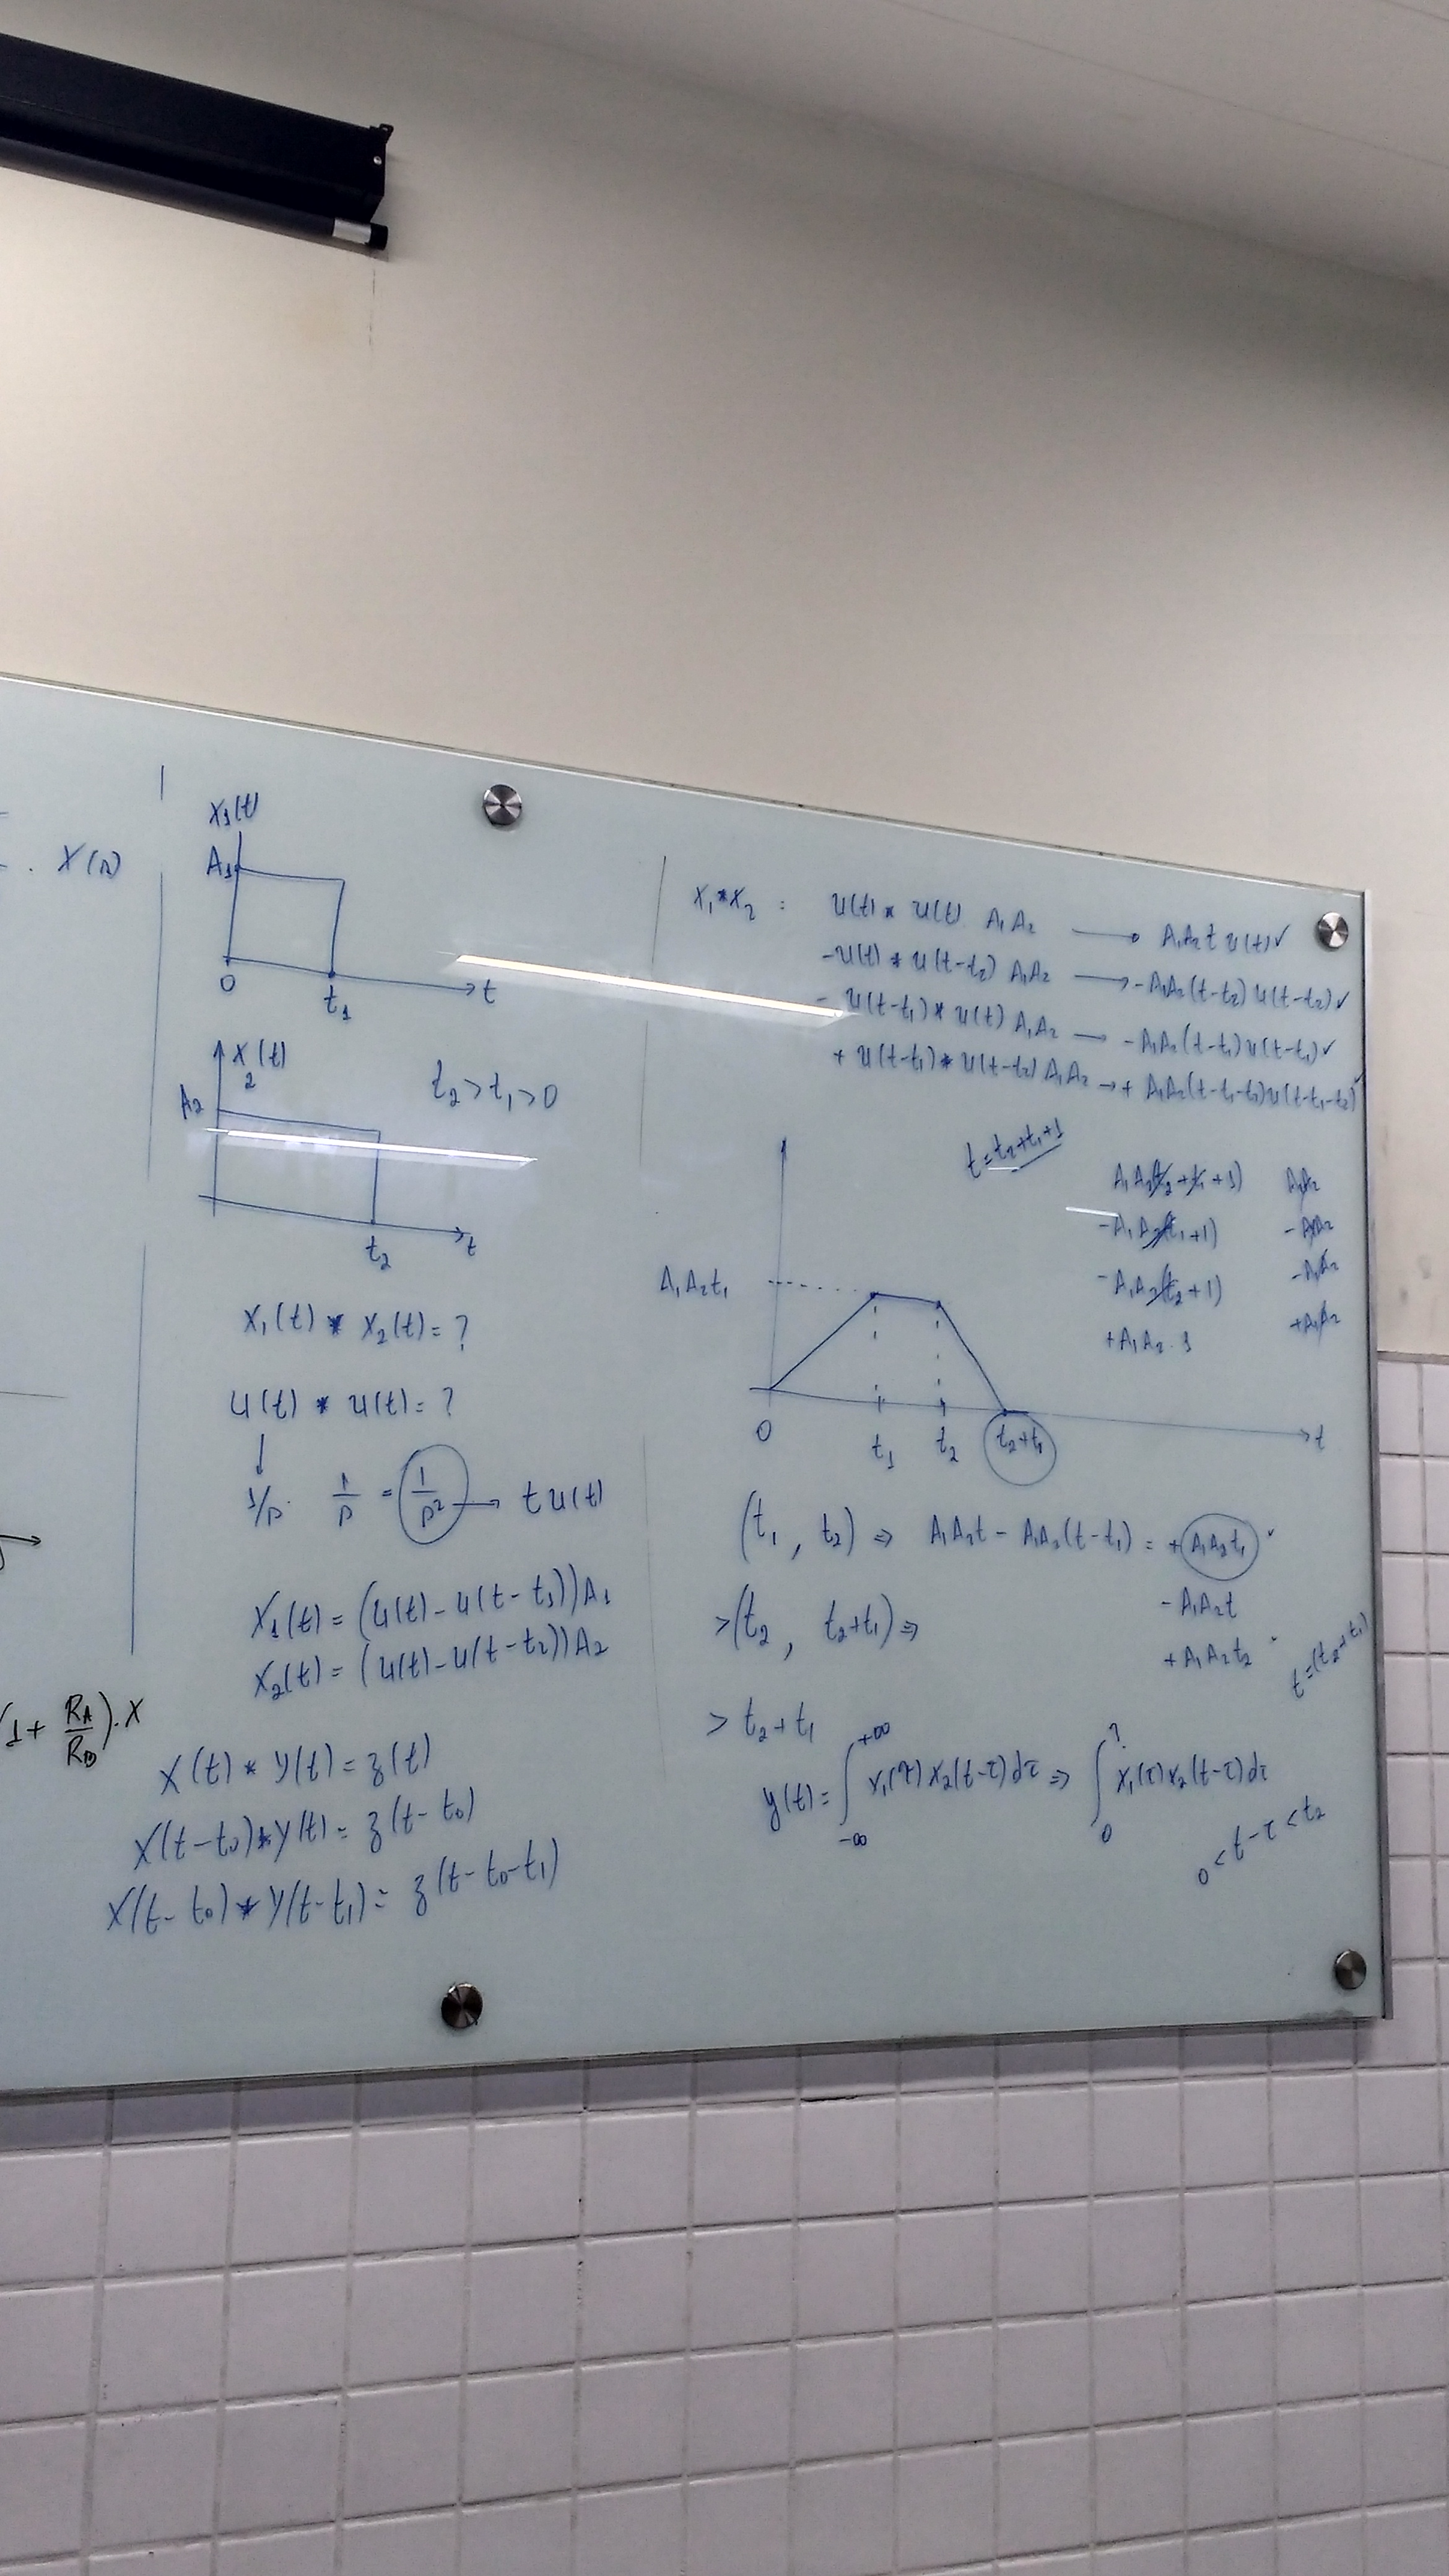 . X(s)
(1 + R_A/R_B).X
x₁(t)
A₁
0
t₁
t
x₂(t)
A₂
t₂ > t₁ > 0
t₂
t
x₁(t) * x₂(t) = ?
u(t) * u(t) = ?
↓
1/s . 1/s = 1/s² → t u(t)
x₁(t) = (u(t) - u(t - t₁))A₁
x₂(t) = (u(t) - u(t - t₂))A₂
x(t) * y(t) = z(t)
x(t - t₀) * y(t) = z(t - t₀)
x(t - t₀) * y(t - t₁) = z(t - t₀ - t₁)
x₁ * x₂ : u(t) * u(t) A₁A₂ → A₁A₂ t u(t) ✓
-u(t) * u(t-t₂) A₁A₂ → -A₁A₂(t-t₂) u(t-t₂) ✓
- u(t-t₁) * u(t) A₁A₂ → -A₁A₂(t-t₁) u(t-t₁) ✓
+ u(t-t₁) * u(t-t₂) A₁A₂ → + A₁A₂(t-t₁-t₂) u(t-t₁-t₂) ✓
t = t₂+t₁+1
A₁A₂(t₂+t₁+1) A₁A₂
-A₁A₂(t₁+1) -A₁A₂
-A₁A₂(t₂+1) -A₁A₂
+A₁A₂.1 +A₁A₂
A₁A₂t₁
0
t₁
t₂
t₂+t₁
t
(t₁, t₂) ⇒ A₁A₂t - A₁A₂(t-t₁) = +A₁A₂t₁ ✓
>(t₂, t₂+t₁) ⇒ -A₁A₂t
+A₁A₂t₂
t=(t₂+t₁)
> t₂+t₁
y(t) = ∫_{-∞}^{+∞} x₁(τ) x₂(t-τ) dτ ⇒ ∫_0^? x₁(τ) x₂(t-τ) dτ
0 < t-τ < t₂